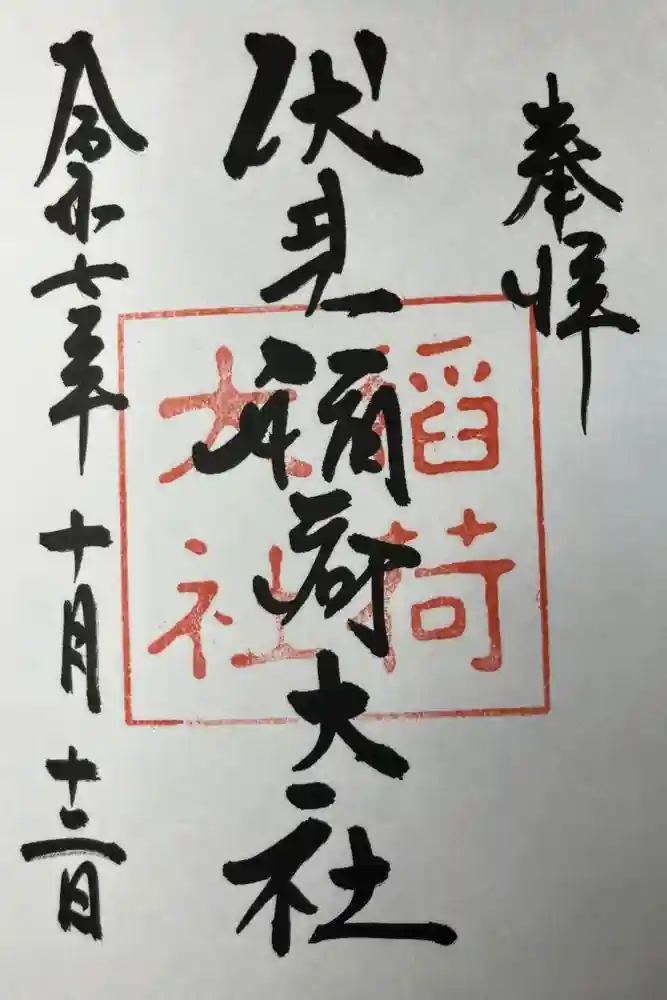 奉拝
伏見稲荷大社
令和七年 十月 十二日
稲荷
大社